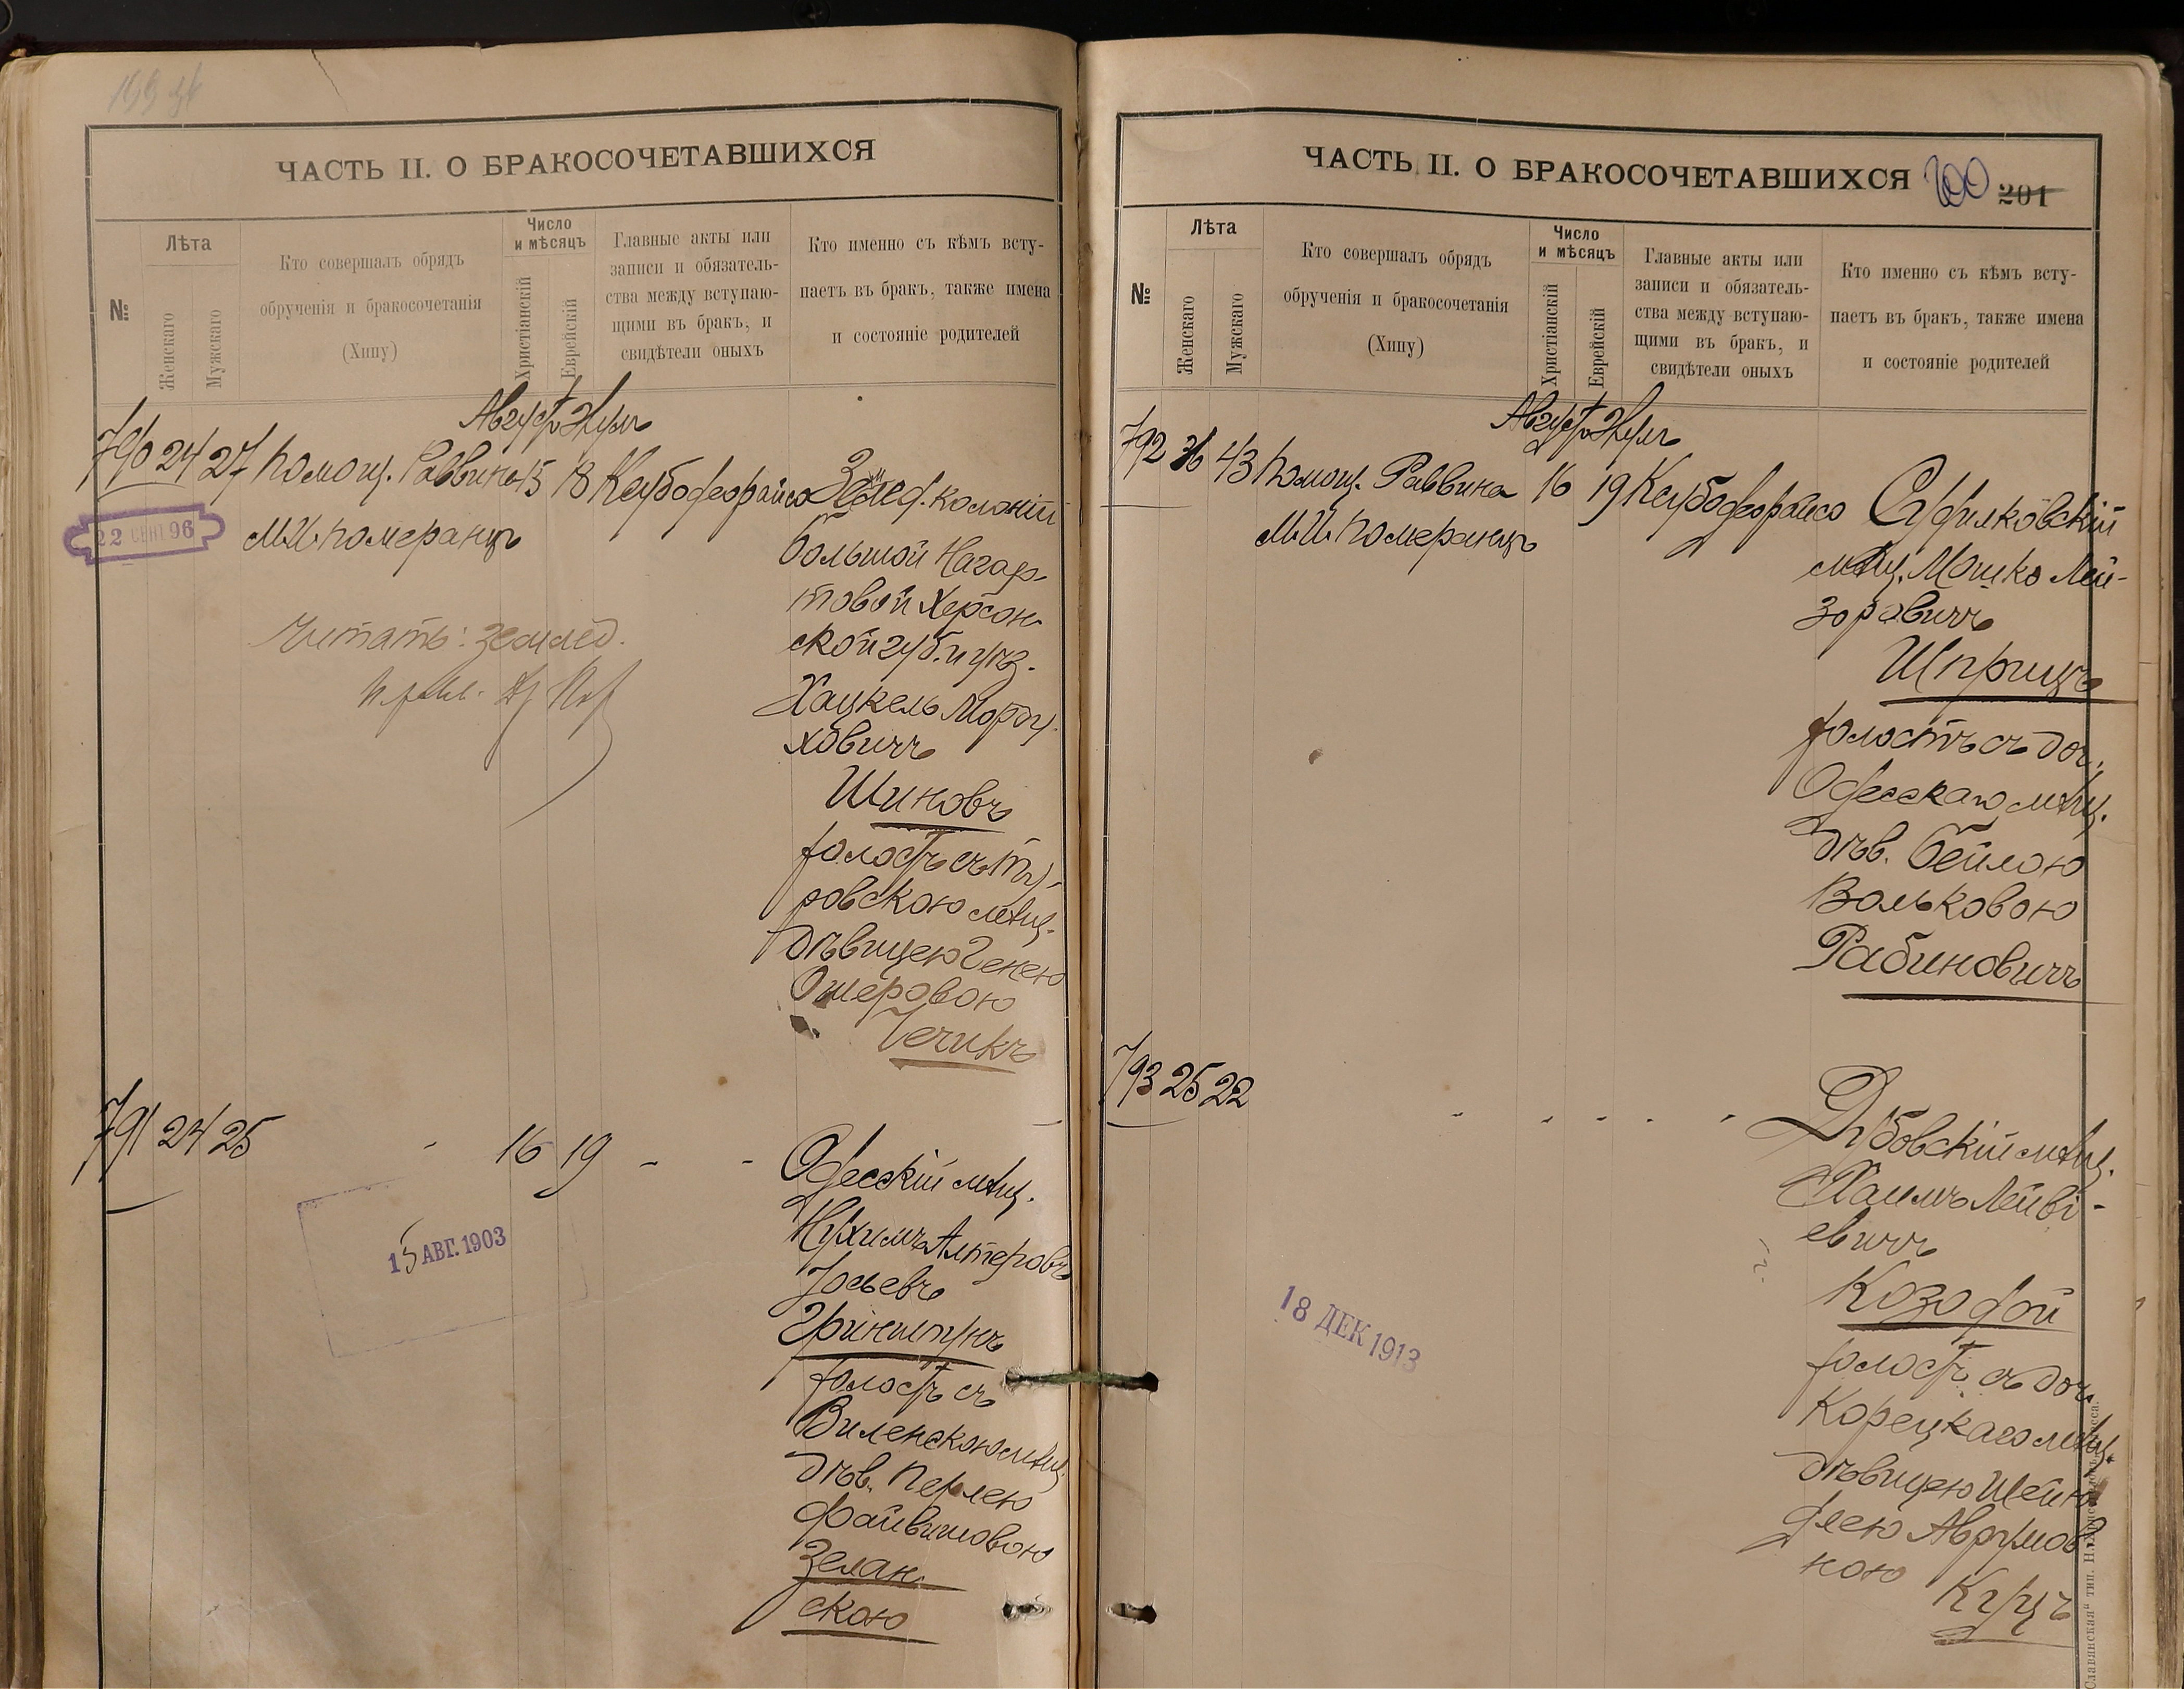 ЧАСТЬ II. О БРАКОСОЧЕТАВШИХСЯ
№
Лѣта
Женскаго
Мужскаго
Кто совершалъ обрядъ
обрученія и бракосочетанія
(Хипу)
Число
и мѣсяцъ
Христіанскій
Еврейскій
Главные акты или
записи и обязатель-
ства между вступаю-
щими въ бракъ, и
свидѣтели оныхъ
Кто именно съ кѣмъ всту-
паетъ въ бракъ, также имена
и состояніе родителей
Августъ
790 24 27 Помощ. Раввина 15 18
М. И. Померанцъ
22 СЕНТ 96
читать: землед.
Землед. колоніи
Большой Нагар-
товой Херсон-
ской губ. и уѣз.
Хацкель Морду-
ховичъ
Шиновъ
холостъ съ Ту-
ровскою мѣщ.
дѣвицею Генею
Ошеровою
Чечикъ
791 24 25 - 16 19 - -
15 АВГ. 1903
Одесскій мѣщ.
Нухимъ Алтеровъ
Іосьевъ
Грінштунъ
холостъ съ
Виленскою мѣщ.
дѣв. Перлею
Файвишовою
Зелан-
скою
ЧАСТЬ II. О БРАКОСОЧЕТАВШИХСЯ
200
201
№
Лѣта
Женскаго
Мужскаго
Кто совершалъ обрядъ
обрученія и бракосочетанія
(Хипу)
Число
и мѣсяцъ
Христіанскій
Еврейскій
Главные акты или
записи и обязатель-
ства между вступаю-
щими въ бракъ, и
свидѣтели оныхъ
Кто именно съ кѣмъ всту-
паетъ въ бракъ, также имена
и состояніе родителей
Августъ
792 36 43 Помощ. Раввина 16 19
М. И. Померанцъ
Судилковскій
мѣщ. Мошко Лей-
зоровичъ
Шприцъ
холостъ съ доч.
Одесскаго мѣщ.
дѣв. Бейлою
Вольковою
Рабиновичъ
793 25 22 - - - - -
18 ДЕК 1913
Дубовскій мѣщ.
Хаимъ Лейві-
евичъ
Козодой
холостъ съ доч.
Корецкаго мѣщ.
дѣвицею Шейн-
длею Аврумов-
ною
Куцъ